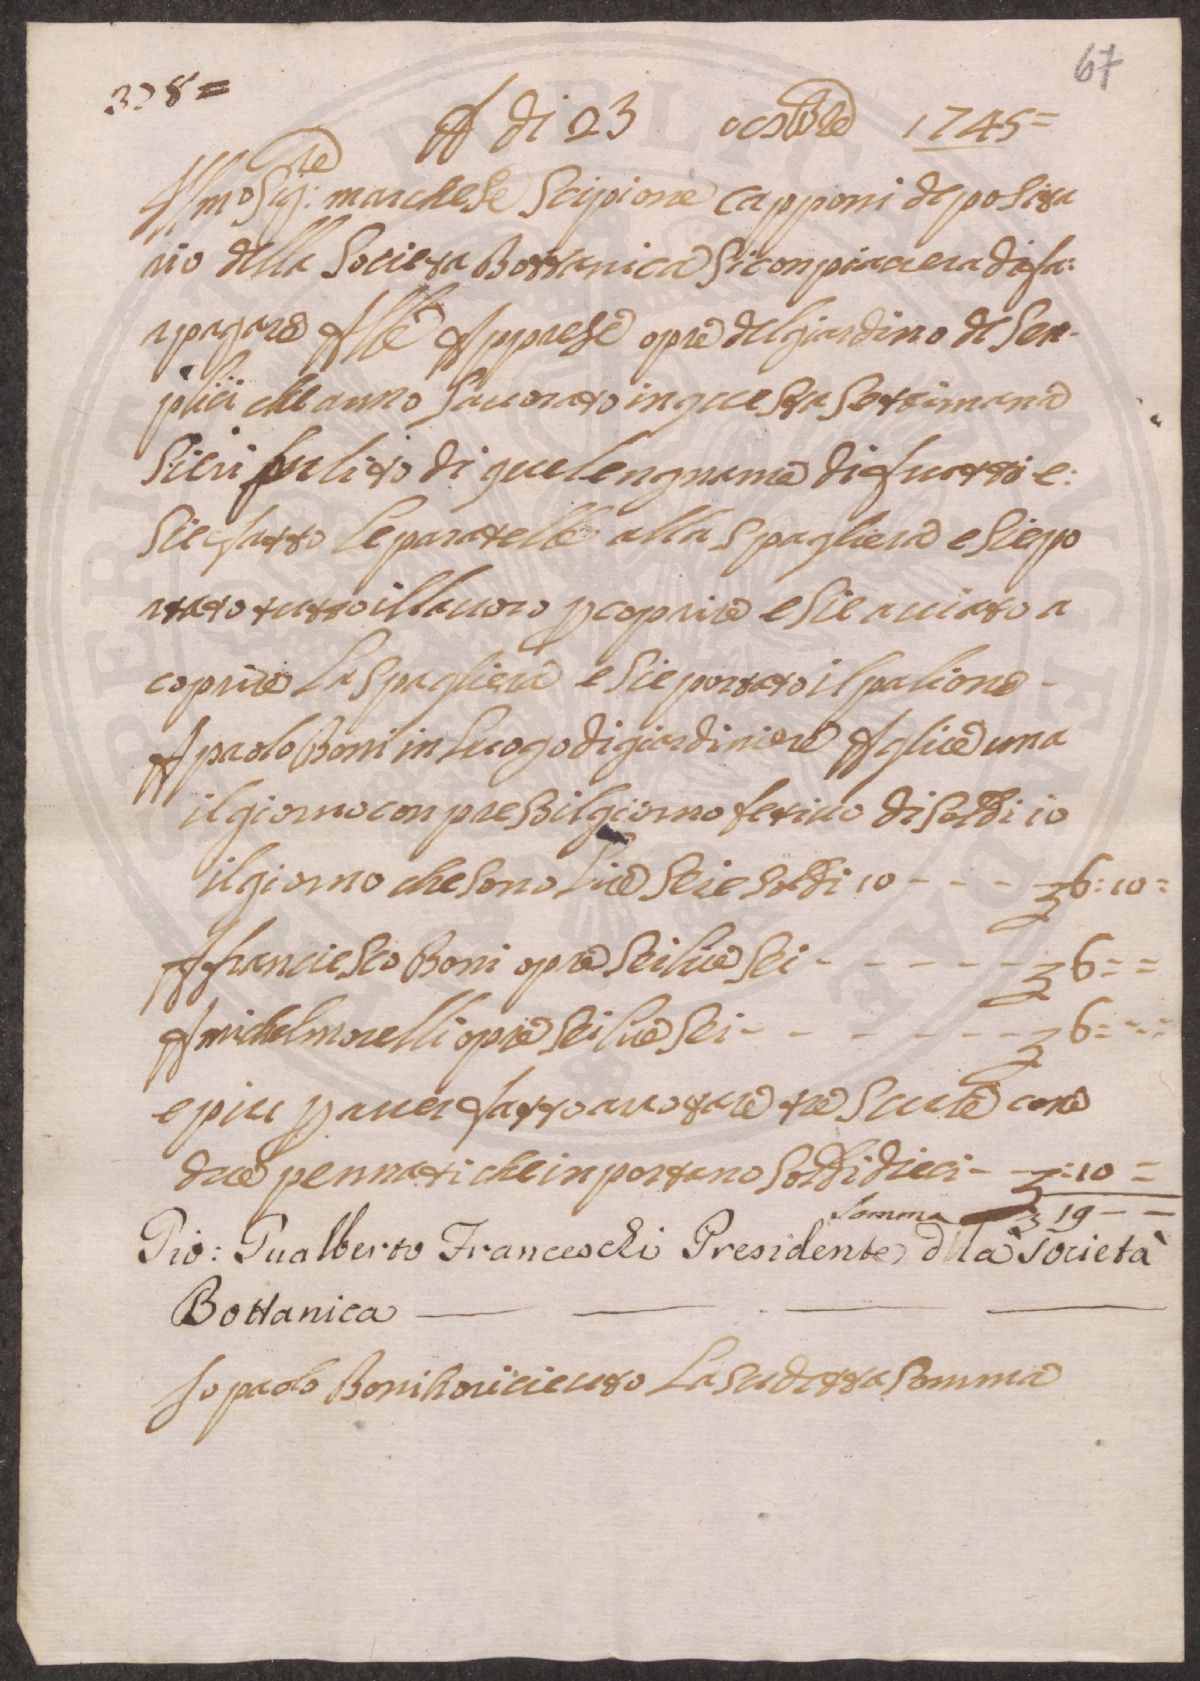 67
328=
A di 23 octobre 1745=
Illmo Sig:re marchese Scipione capponi deposita
rio della Societa Bottanica Si conpiacera di fa:
r pagare Alle Apprese opre del giardino de Sen-
plici che anno lauorato in questa Settimana
Sieri pulito di quel lengname di fuorri e:
Sie fatto le paratelle alla Spagliera e Sie ppo
rtato tutto il lauoro p coprire e Sie auiato a
coprire la Spagliera e Sie portato il palione -
A paolo Boni in luogo di giardiniere A gliire una
il giorno con preso il giorno festiuo di Soldi 10
il giorno che sono lire Sei e Soldi 10 - - - - £ 6:10=
A franciesco Boni opre Sei lire Sei - - - - - - £ 6= =
A michel morelli opre Sei lire Sei - - - - - - £ 6= = =
e piu p auer fatto arotare tre Scure con
due pennati che inportano Soldi dieci - - £ :10 =
Somma £ 19 - -
Gio: Gualberto Franceschi Presidente dlla Società
Bottanica
Io paolo Boni ho riceuuto La Sudetta Somma